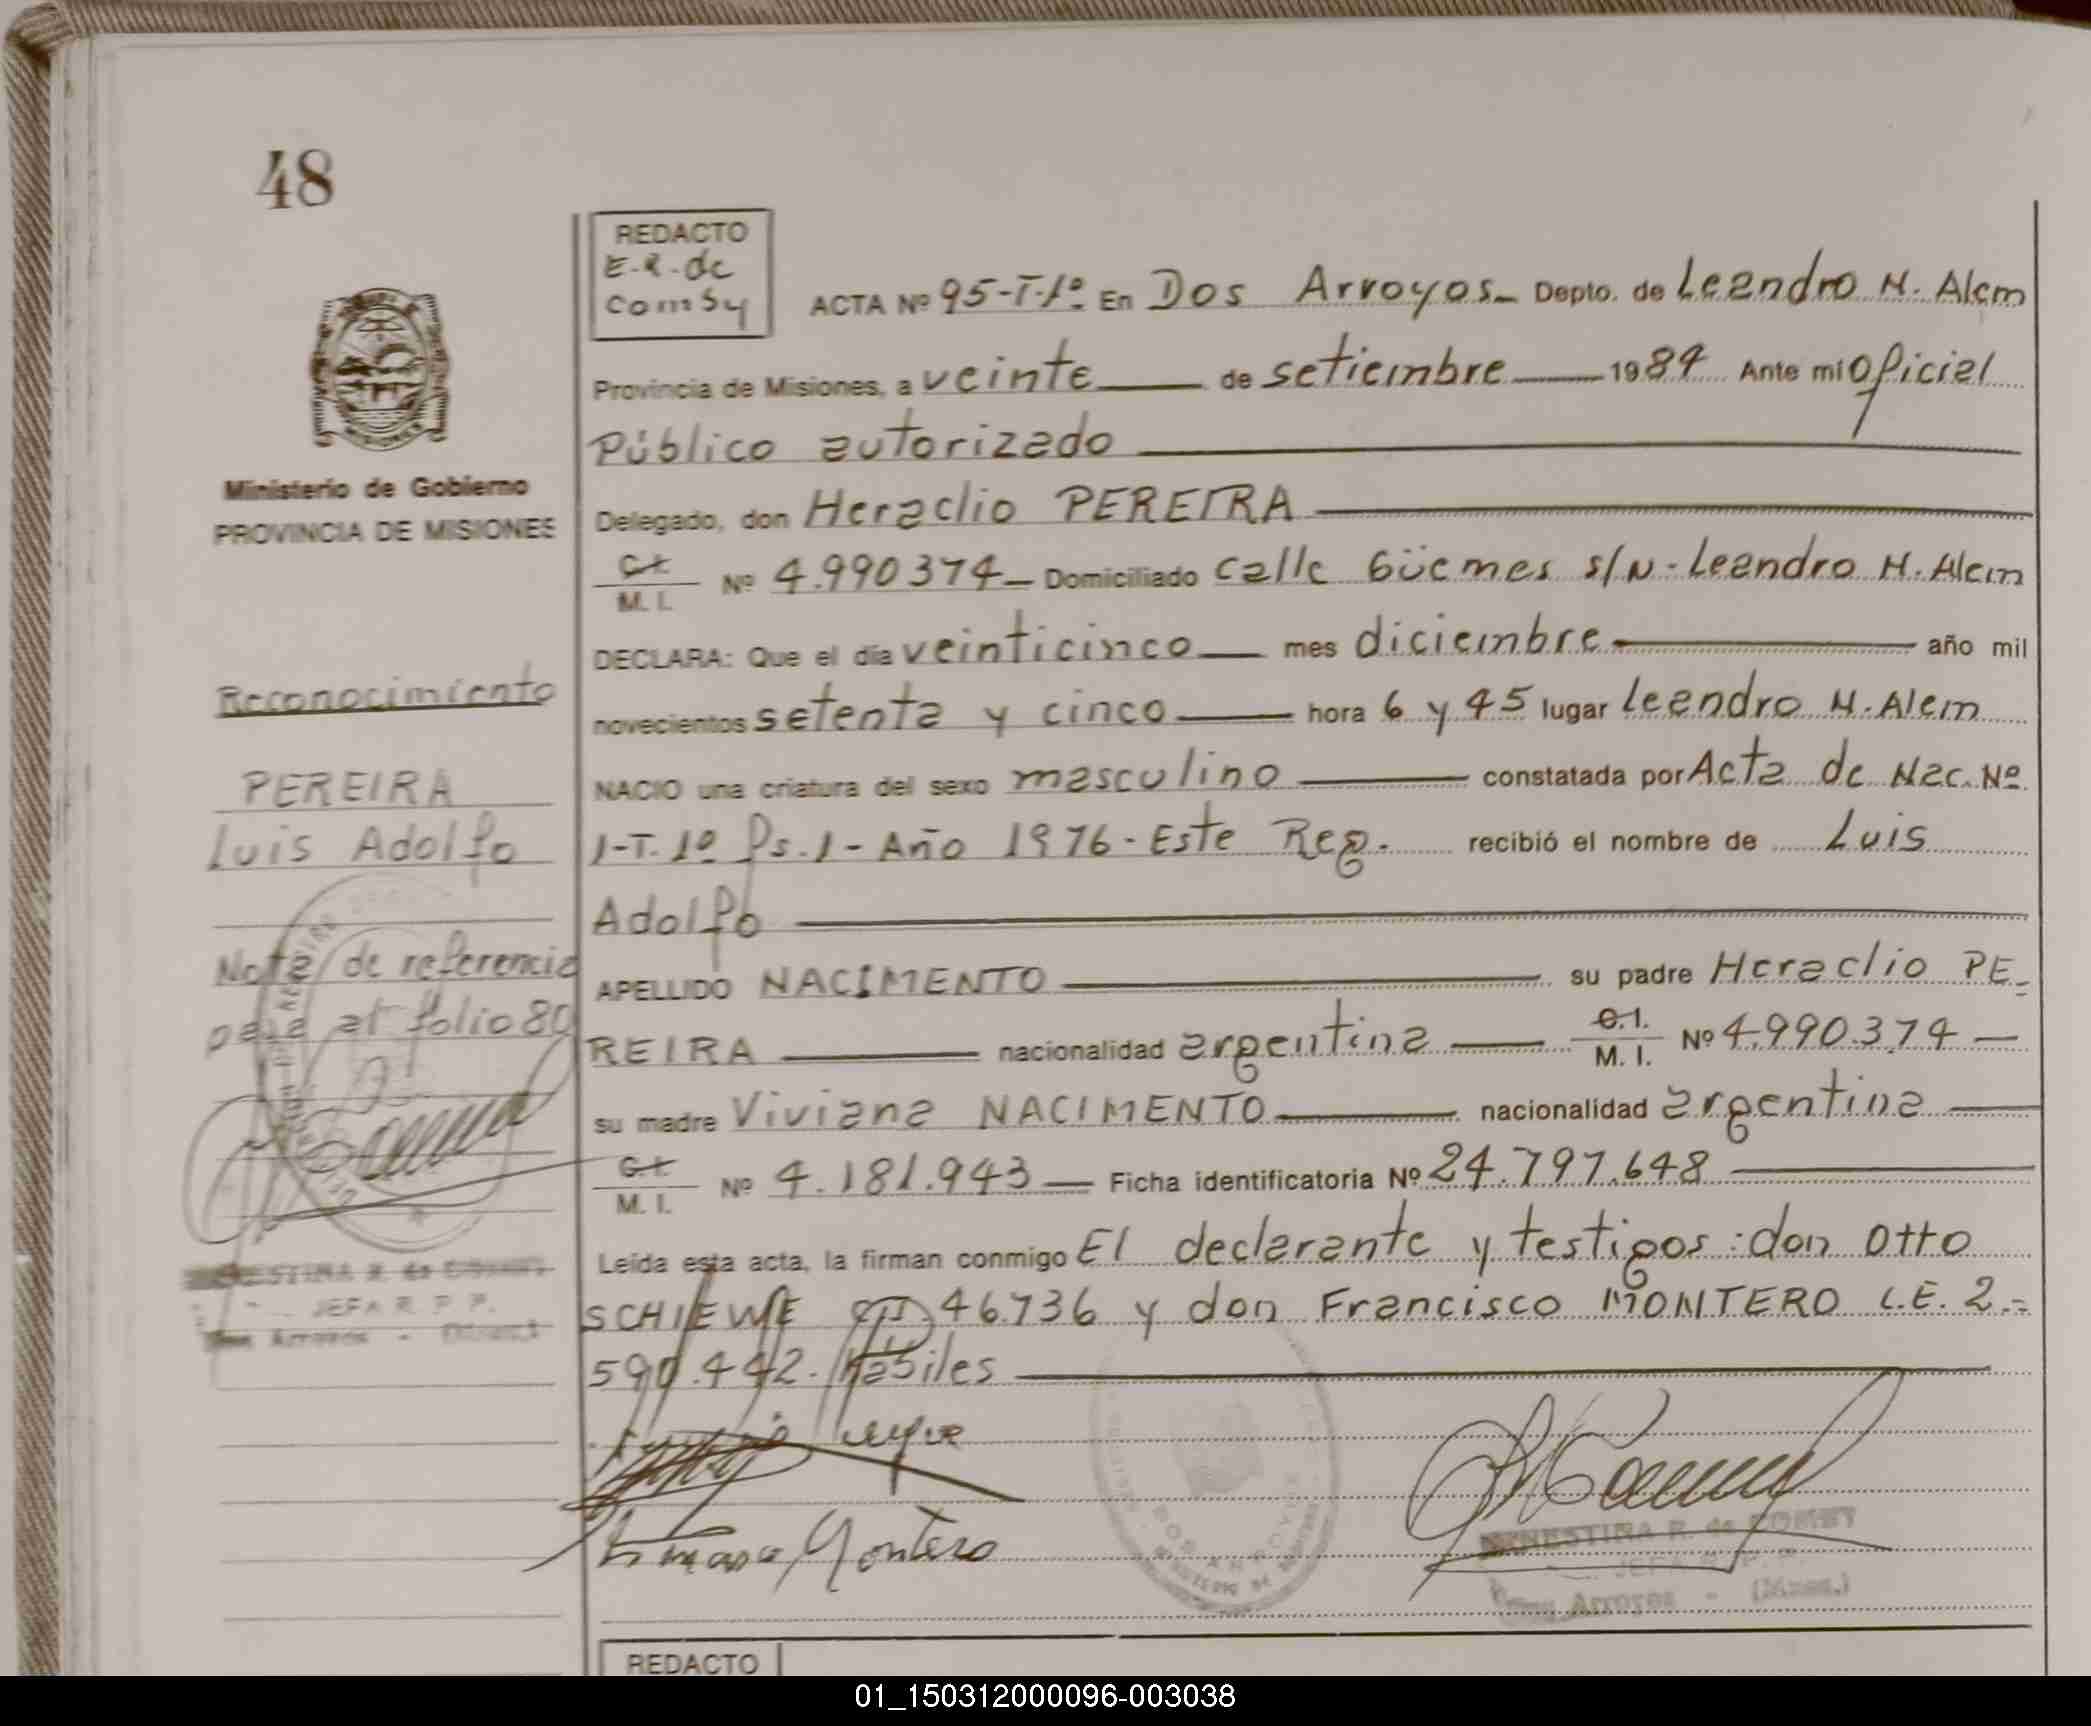 48
REDACTO
E.R. de
Comby
ACTA Nº 95-T-1º En Dos Arroyos Depto. de Leandro N. Alem
Provincia de Misiones, a veinte de setiembre 1984 Ante mi Oficial
Público autorizado
Ministerio de Gobierno
PROVINCIA DE MISIONES
Delegado, don Heraclio PEREIRA
C.I.
M. I. Nº 4.990374 Domiciliado calle Güemes s/N. Leandro N. Alem
DECLARA: Que el día veinticinco mes diciembre año mil
novecientos setenta y cinco hora 6 y 45 lugar Leandro N. Alem
NACIO una criatura del sexo masculino constatada por Acta de Nac. Nº
1-T. 1º Fs. 1 - Año 1976 - Este Reg. recibió el nombre de Luis
Adolfo
APELLIDO NACIMENTO su padre Heraclio PE-
REIRA nacionalidad argentina C.I.
M. I. Nº 4.990.374
su madre Viviana NACIMENTO nacionalidad argentina
C.I.
M. I. Nº 4.181.943 Ficha identificatoria Nº 24.797.648
Leída esta acta, la firman conmigo El declarante y testigos: don Otto
SCHIEWE 46.736 y don Francisco MONTERO L.E. 2.-
590.442. hábiles
Reconocimiento
PEREIRA
Luis Adolfo
Nota de referencia
pasa al folio 80
ERNESTINA R. de COMBY
JEFA R. P. P.
Dos Arroyos - (Misnes.)
Montero
DOS ARROYOS
ERNESTINA R. de COMBY
JEFA R. P. P.
Dos Arroyos - (Misnes.)
REDACTO
01_150312000096-003038